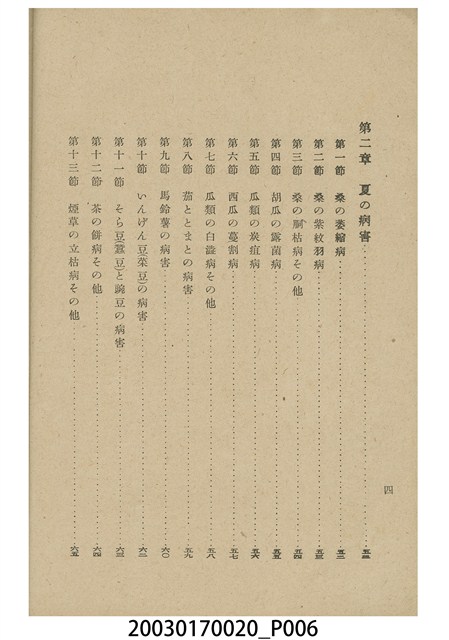 第二章　夏の病害……五三
第一節　桑の萎縮病……五三
第二節　桑の紫紋羽病……五三
第三節　桑の胴枯病その他……五四
第四節　胡瓜の露菌病……五五
第五節　瓜類の炭疽病……五六
第六節　西瓜の蔓割病……五七
第七節　瓜類の白澁病その他……五八
第八節　茄ととまとの病害……五九
第九節　馬鈴薯の病害……六〇
第十節　いんげん豆(菜豆)の病害……六二
第十一節　そら豆(蠶豆)と豌豆の病害……六三
第十二節　茶の餅病その他……六四
第十三節　煙草の立枯病その他……六五
四
20030170020_P006